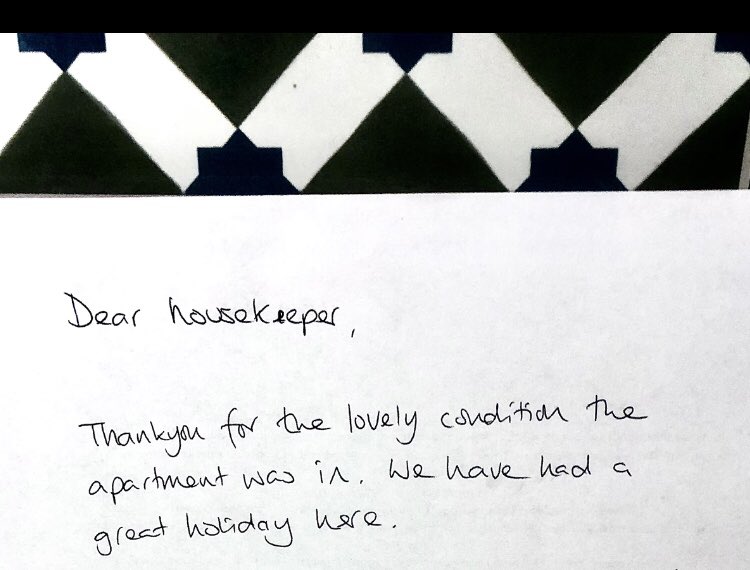 Dear housekeeper,
Thankyou for the lovely condition the
apartment was in. We have had a
great holiday here.